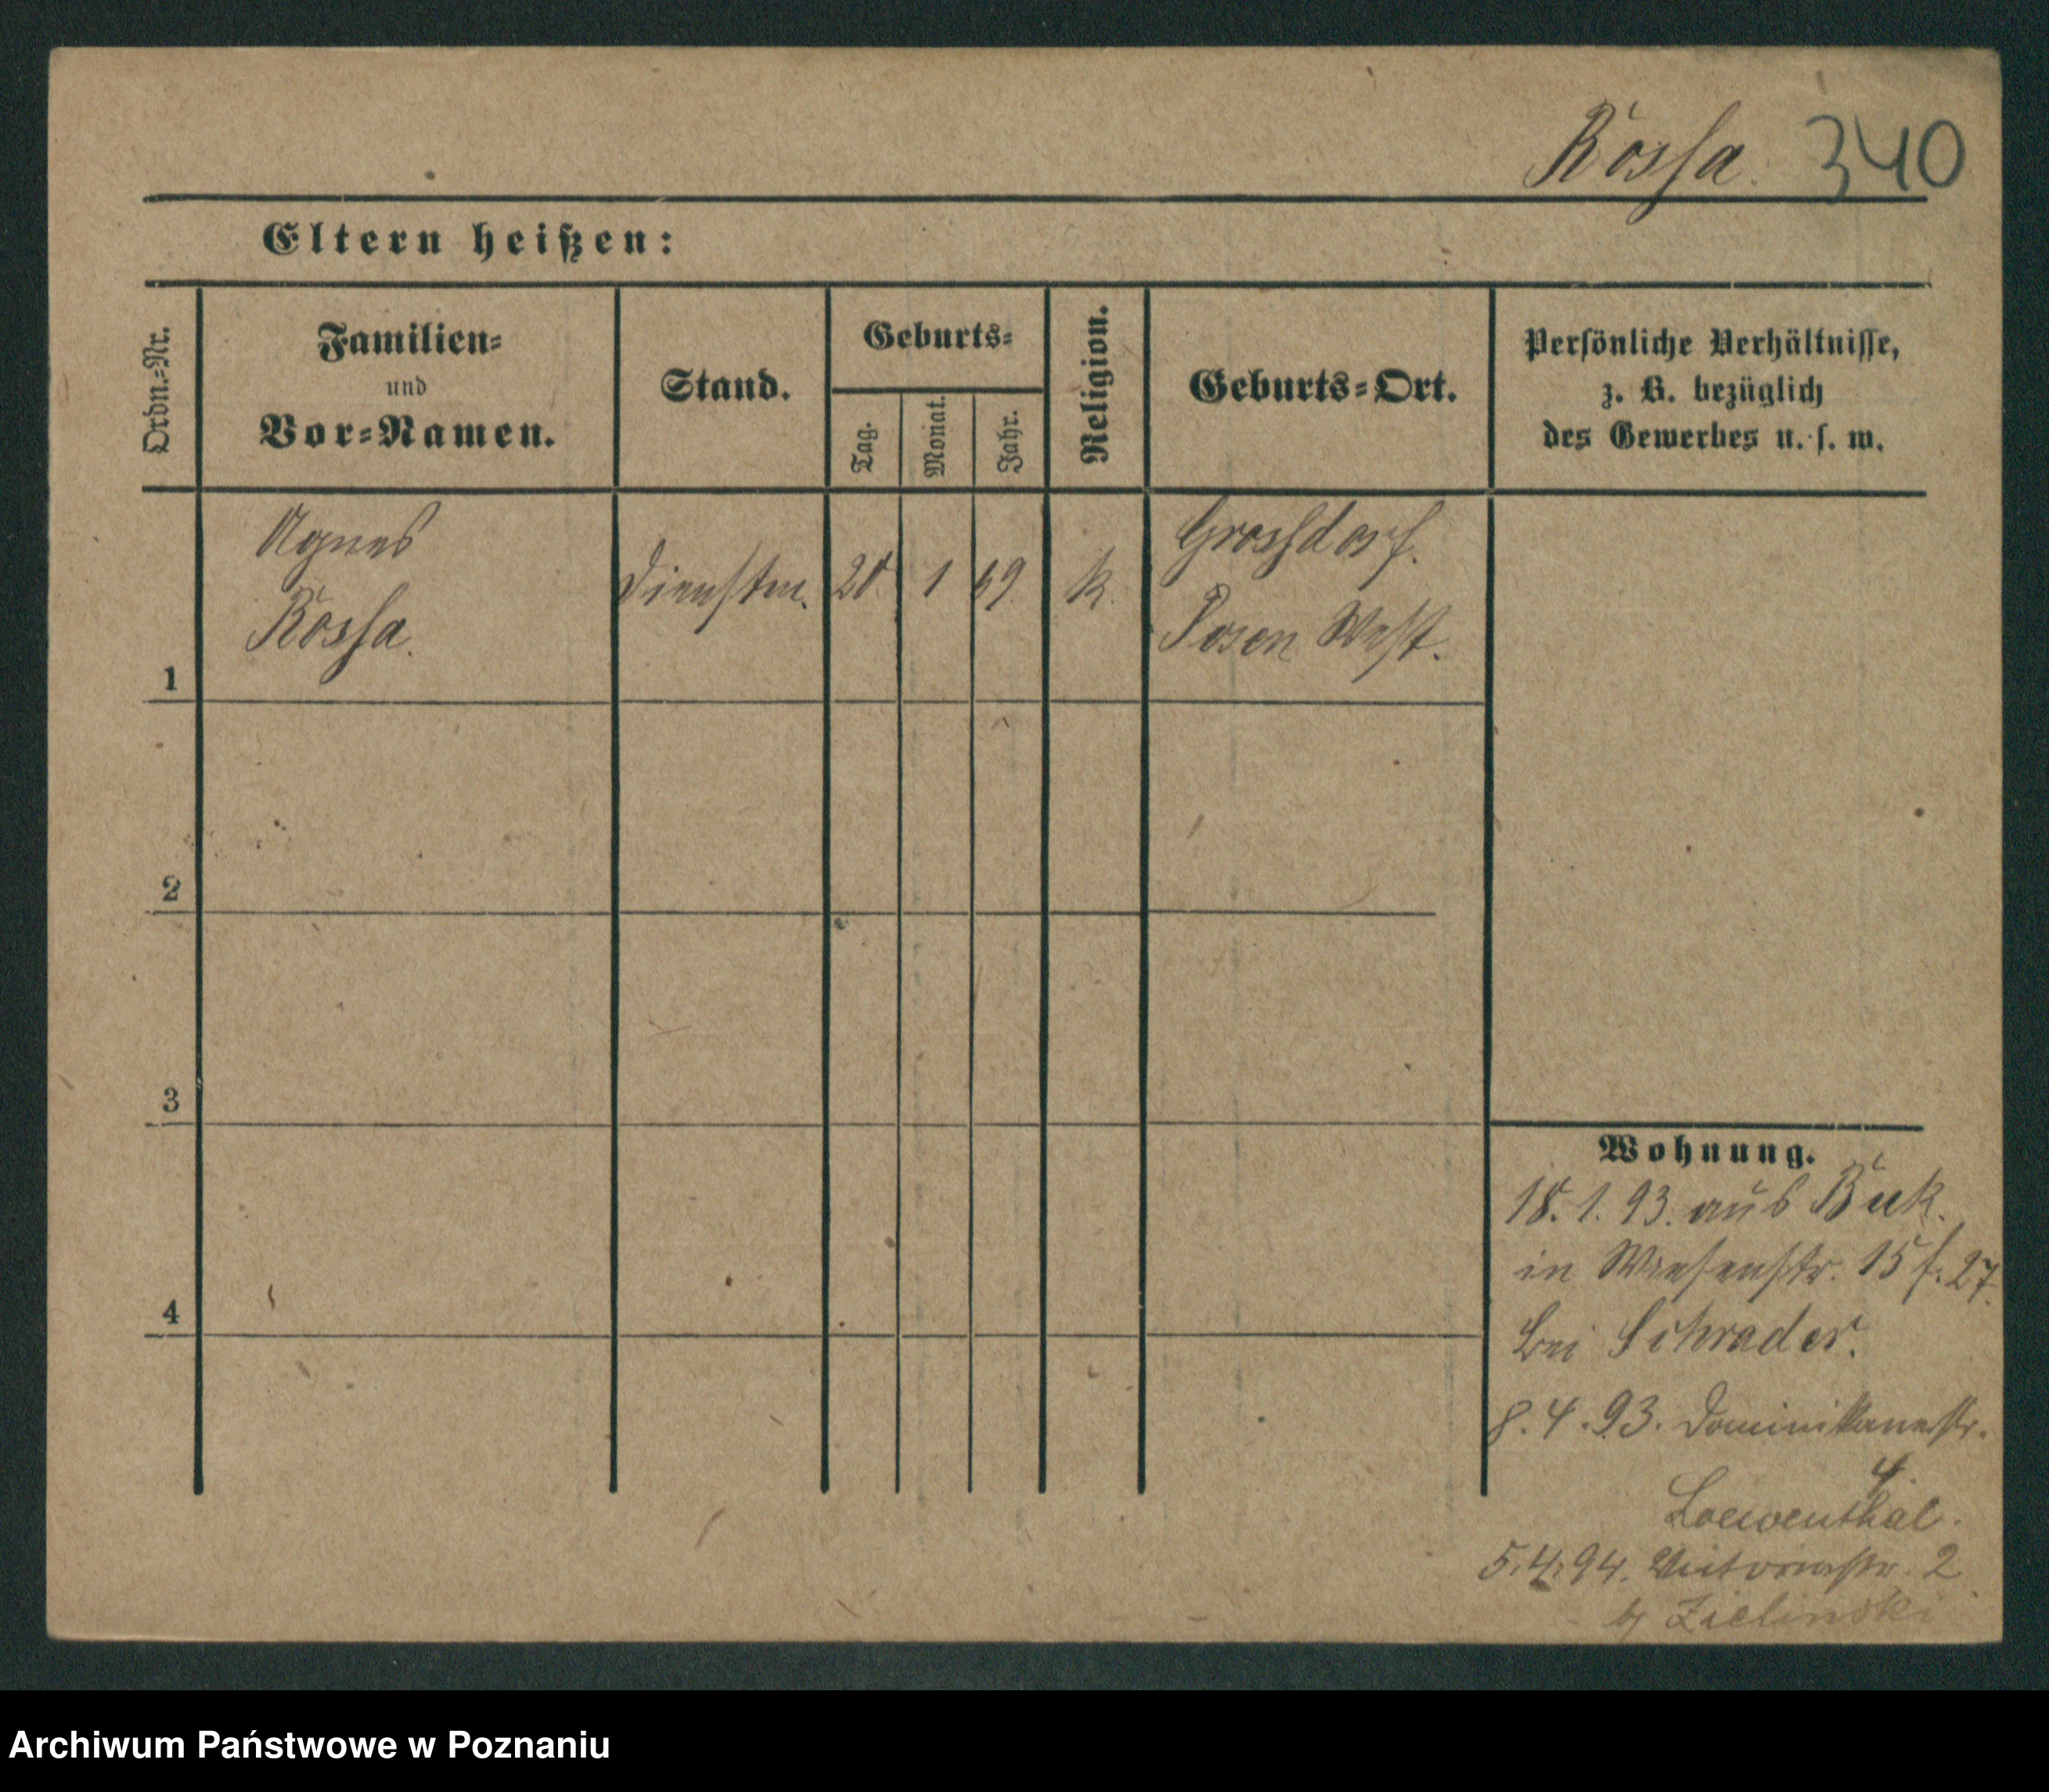 Rossa. 340
Eltern heißen:
Ordn.-Nr.
Familien-
und
Vor-Namen.
Stand.
Geburts-
Tag.
Monat.
Jahr.
Religion.
Geburts-Ort.
Persönliche Verhältnisse,
z. B. bezüglich
des Gewerbes u. s. w.
1
Agnes
Rossa.
Dienstm.
20. 1 69. k.
Grossdorf.
Posen West.
2
3
4
Wohnung.
18. 1. 93. aus Buk.
in Wiesenstr. 15 f. 27.
bei Schrader.
8. 4. 93. Dominikanerstr.
4.
Loewenthal.
5. 4. 94. Victoriastr. 2
Zielinski
Archiwum Państwowe w Poznaniu